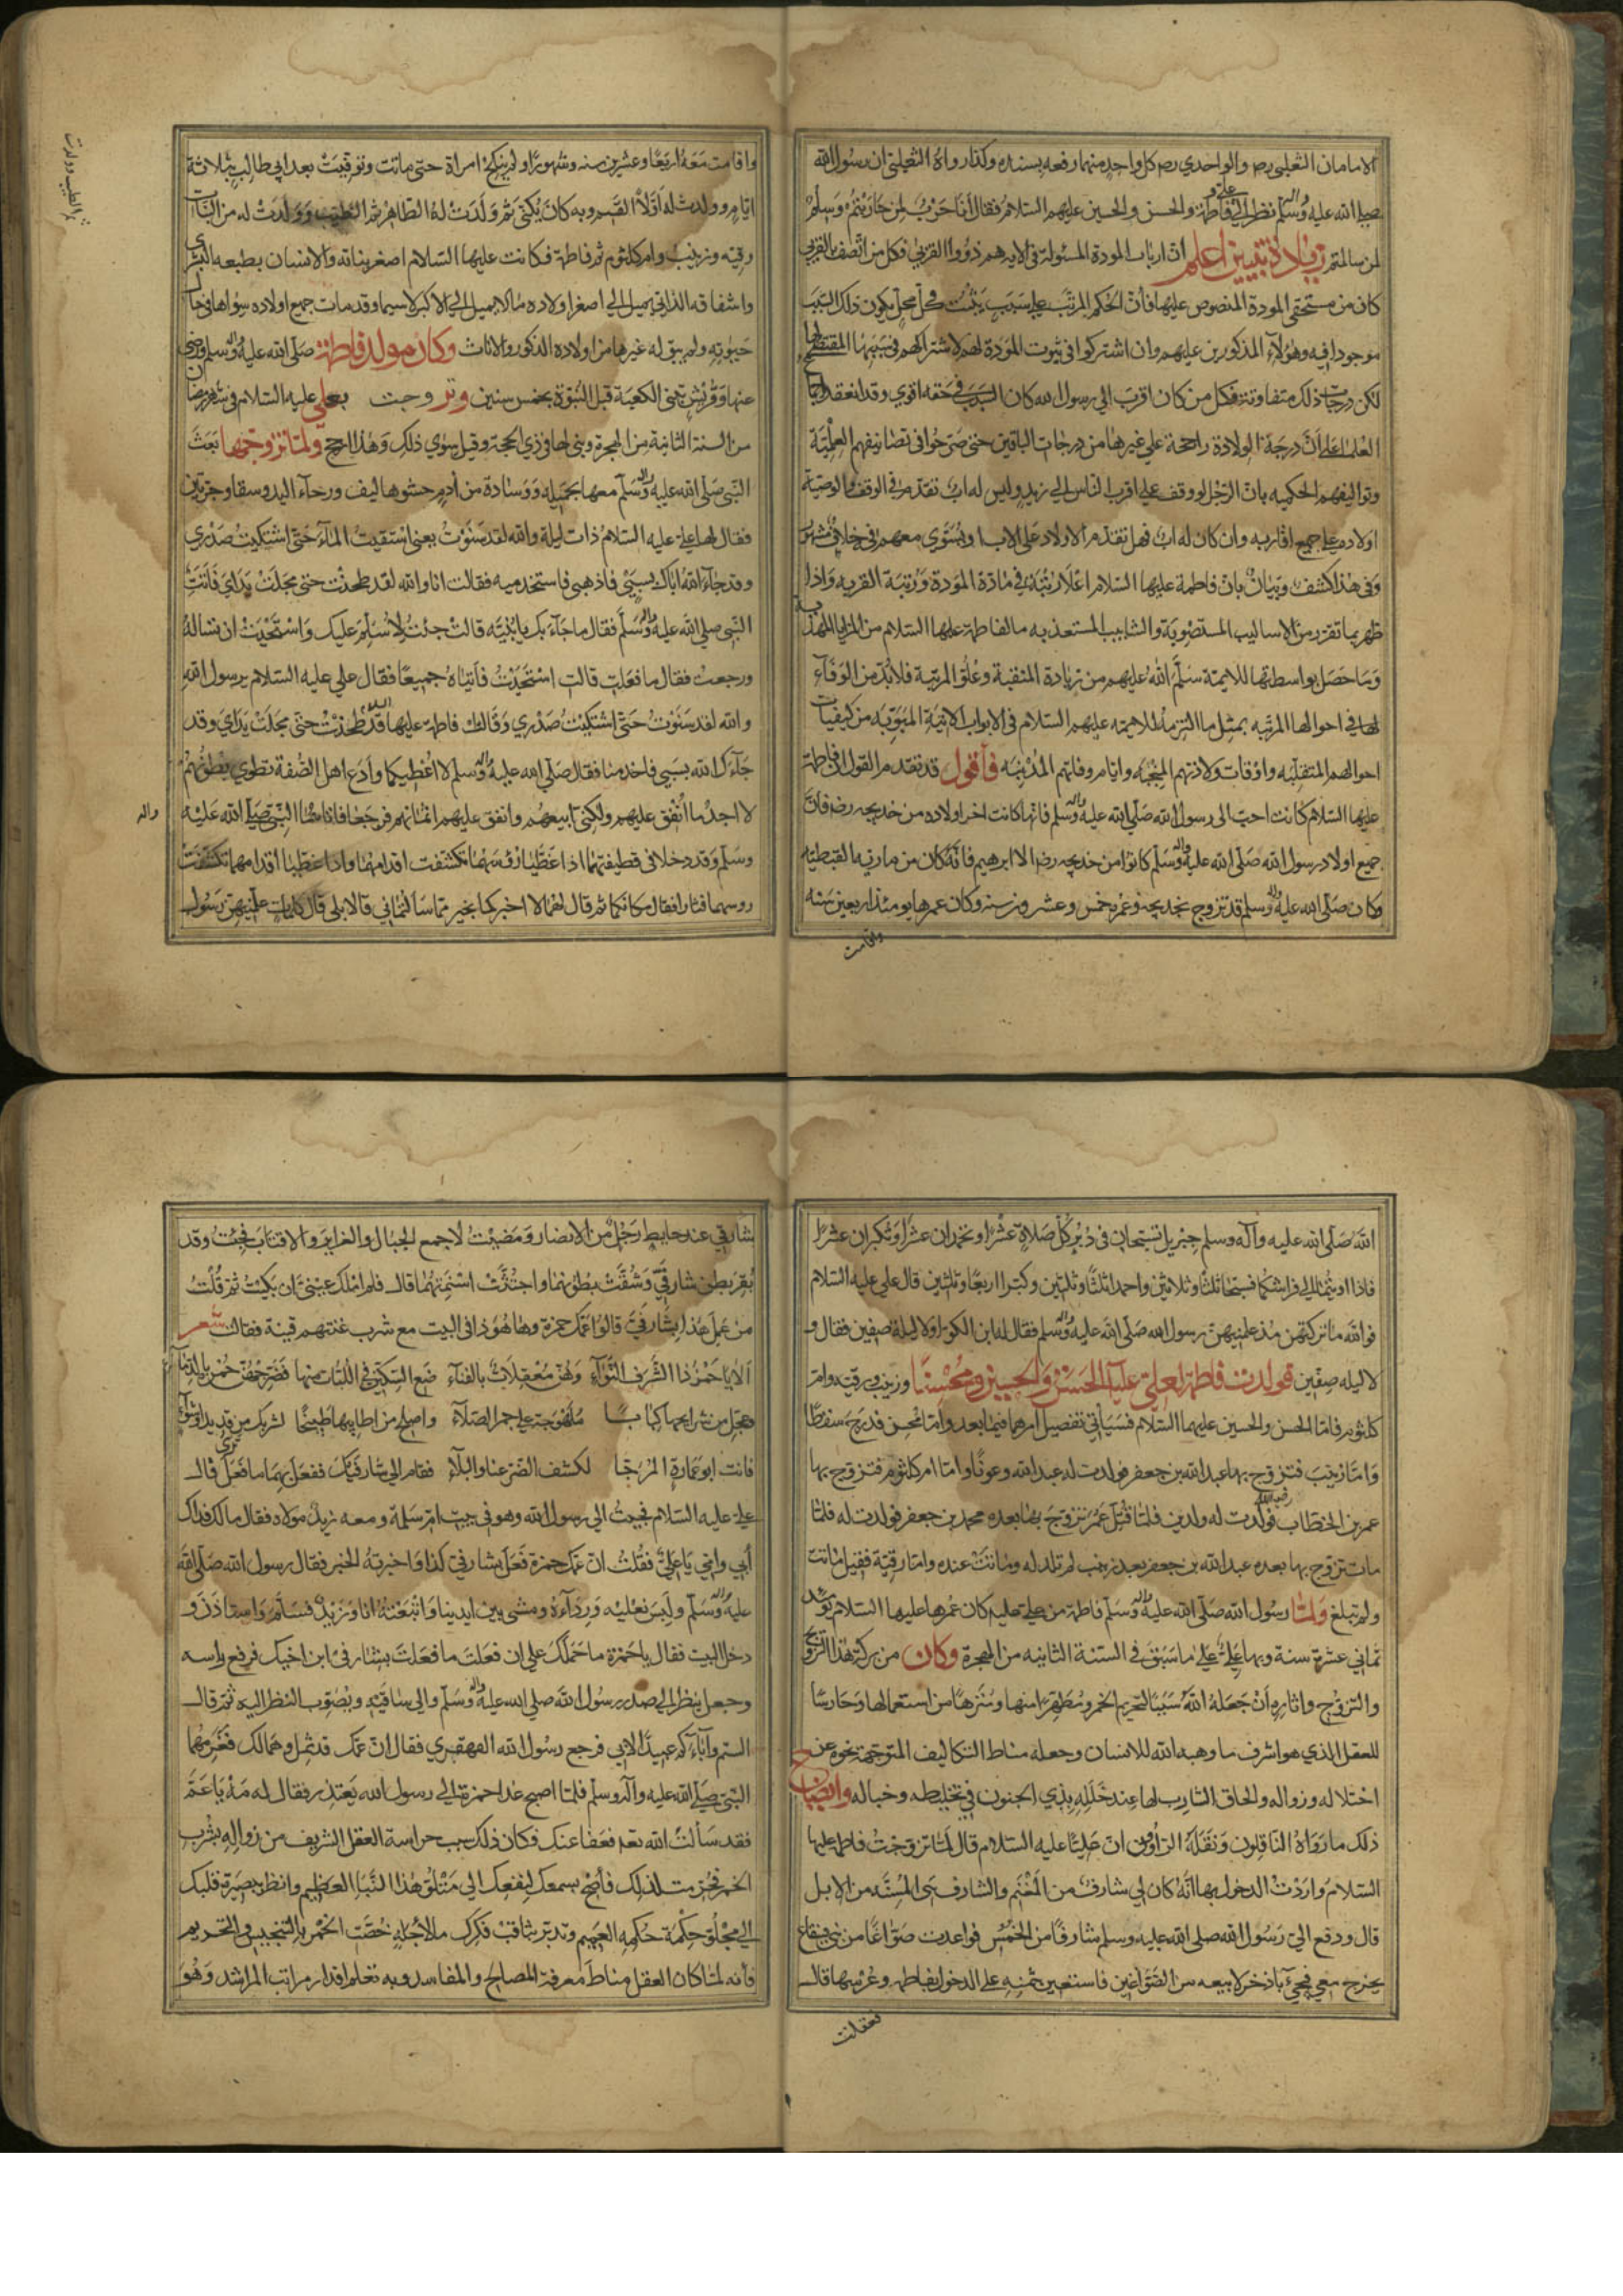 الامامان الثعلبي رض والواحدي رض كل واحد منهما رفعه بسنده وكذا رواه الثعلبي ان رسول الله
صلى الله عليه وآله وسلم نظر الى علي وفاطمة والحسن والحسين عليهم السلام فقال أنا حرب لمن حاربتم وسلم
لمن سالمتم زيادة تبيين اعلم ان ارباب المودة المسئولة في الاية هم ذووا القربى فكل من اتصف بالقربى
كان من مستحقي المودة المنصوص عليها فان الحكم المرتب على سبب يثبت في كل محل يكون ذلك السبب
موجودا فيه وهؤلاء المذكورين عليهم وان اشتركوا في ثبوت المودة لهم لاشتراكهم في سببها المقتضي لها
لكن درجات ذلك متفاوتة فكل من كان اقرب الى رسول الله كان السبب في حقه اقوي وقد انعقد
العلماء على ان درجة الولادة راجحة علي غيرها من درجات الباقين حتى صرحوا في تصانيفهم العلمية
وتواليفهم الحكميه بان الرجل لو وقف على اقرب الناس الى زيد وليس له اب تقدم في الوقف والوصية
اولاده على جميع اقاربه وان كان له اب فهل تقدم الاولاد على الاب او يستوي معهم في خلاف مشهور
وفي هذا كشف وبيان بان فاطمة عليها السلام اعلا رتبة في مادة المودة ورتبة القربه واذا
ظهر بما تقرر من الاساليب المستصوبة والشابيب المستعذبه ما لفاطمة عليها السلام من المزايا المهذبة
وما حصل بواسطتها للايمة سلم الله عليهم من زيادة المنقبة وعلو المرتبة فلا بد من الوفاء
لها في احوالها المرتبه بمثل ما التزم للايمة عليهم السلام في الابواب الاتية المبوبه من كيفيات
احوالهم المتقلبه واوقات ولادتهم المنجبه وايام وفاتهم المذهبه فأقول قد تقدم القول ان فاطمة
عليها السلام كانت احب الى رسول الله صلى الله عليه وآله وسلم فانها كانت اخر اولاده من خديجه رض فان
جميع اولاد رسول الله صلى الله عليه وآله وسلم كانوا من خديجه رض الا ابرهيم فانه كان من مارية القبطيه
وكان صلى الله عليه وآله وسلم قد تزوج بخديجه وعمره خمس وعشرون سنة وكان عمرها يومئذ اربعين سنه
واقامت
ثم الطيب وولدت
واقامت معه اربعا وعشرين سنه وشهورا ولم ينكح امراة حتى ماتت وتوفيت بعد ابي طالب بثلاثة
ايام وولدت له اولا القسم وبه كان يكنى ثم ولدت له الطاهر ثم الطيب وولدت له من البنات
رقيه وزينب وام كلثوم ثم فاطمة فكانت عليها السلام اصغر بناته والانسان بطبعه البشري
واشفاقه الذاتي يميل الى اصغر اولاده ما لا يميل الى الاكبر لا سيما وقد مات جميع اولاده سواها في حال
حيوته ولم يبق له غيرها من اولاده الذكور والاناث وكان مولد فاطمة صلى الله عليه وآله وسلم ورضي
عنها وقريش تبني الكعبة قبل النبوة بخمس سنين وتزوجت بعلي عليه السلام في شهر رمضان
من السنة الثانية من الهجرة وبنى لها في ذي الحجة وقيل سوي ذلك وهذا ارجح ولما تزوجها بعث
النبي صلى الله عليه وآله وسلم معها بخميله ووسادة من أدم حشوها ليف ورحاء اليد وسقا وجرتين
فقال لها علي عليه السلام ذات ليلة والله لقد سنوت يعني استقيت الماء حتى اشتكيت صدري
وقد جاء الله اباك بسبي فاذهبي فاستخدميه فقالت انا والله لقد طحنت حتى مجلت يداي فأتت
النبي صلى الله عليه وآله وسلم فقال ما جاء بك يا بنيه قالت جئت لاسلم عليك واستحيت ان تساله
ورجعت فقال ما فعلت قالت استحييت فأتياه جميعا فقال علي عليه السلام يرسول الله
والله لقد سنوت حتى اشتكيت صدري وقالت فاطمة عليها السلام قد طحنت حتى مجلت يداي وقد
جاءك الله بسبي فاخدمنا فقال صلى الله عليه وآله وسلم لا اعطيكما وأدع اهل الصفة تطوي بطونهم
لا اجد ما انفق عليهم ولكني ابيعهم وانفق عليهم اثمانهم فرجعا فاتاهما النبي صلى الله عليه
واله
وسلم وقد دخلا في قطيفتهما اذا غطيا رؤسهما تكشفت اقدامهما واذا غطيا اقدامهما تكشفت
روسهما فثارا فقال مكانكما ثم قال لهما الا اخبركما بخير مما سالتماني قالا بلى قال كلمات علمنيهن رسول
الله صلى الله عليه وآله وسلم جبريل تسبحان في دبر كل صلاة عشرا وتحمدان عشرا وتكبران عشرا
فاذا اويتما الى فراشكما فسبحا ثلثا وثلاثين واحمدا ثلثا وثلثين وكبرا اربعا وثلثين قال علي عليه السلام
فوالله ما تركتهن مذ علمنيهن رسول الله صلى الله عليه وآله وسلم فقال له ابن الكوا ولا ليلة صفين فقال و
لا ليله صفين فولدت فاطمة لعلي عليه الحسن والحسين ومحسنا وزينب ورقيه وام
كلثوم فاما الحسن والحسين عليهما السلام فسياتي تفصيل امرهما فيما بعد واما محسن فدرج سقطا
واما زينب فتزوج بها عبد الله بن جعفر فولدت له عبد الله وعونا واما ام كلثوم فتزوج بها
عمر بن الخطاب رضي الله فولدت له ولدين فلما قتل عمر تزوج بها بعده محمد بن جعفر فولدت له فلما
مات تزوج بها بعده عبد الله بن جعفر بعد زينب لم تلد له وماتت عنده واما رقية فقيل ماتت
ولم تبلغ ولما رسول الله صلى الله عليه وآله وسلم فاطمة من علي عليه كان عمرها عليها السلام يومئذ
ثماني عشرة سنة وبها علي على ما سبق في السنة الثانيه من الهجرة وكان من بركة هذا التزويج
والتزوج واثاره ان جعله الله سببا لتحريم الخمر ومطهرا منها ومنزها من استعمالها وحارسا
للعقل الذي هو اشرف ما وهبه الله للانسان وجعله مناط التكاليف المتوجهة نحوه عن
اختلاله وزواله والحاق الشارب لها عند خلله بذي الجنون في تخليطه وخباله وايضاح
ذلك ما رواه الناقلون ونقله الراوون ان عليا عليه السلام قال لما تزوجت فاطمه عليها
السلام واردت الدخول بها انه كان لي شارف من المغنم والشارف هي المسنه من الابل
قال ودفع الي رسول الله صلى الله عليه وسلم شارفا من الخمس فواعدت صواغا من بني قينقاع
يخرج معي فنجيء باذخر لابيعه من الصواغين فاستعين بثمنه على الدخول بفاطمه وعرسها قال
شارفي عند حايط رجل من الانصار ومضيت لاجمع الحبال والغراير والاقتاب فجئت وقد
بقر بطن شارفي وشقت بطونهما واجتثت اسنمتهما قال فلم املك عيني ان بكيت ثم قلت
من عمل هذا بشارفي قالوا عمك حمزة وها هو ذا في البيت مع شرب غنتهم قينة فقالت شعر
ألا يا حمز ذا الشرف النواء وهن معقلات بالفناء ضع السكين في اللبات منها فضرجهن حمز بالدماء
وعجل من شرايحها كبابا ملهوجة على جمر الصلاء واصلح من اطايبها طبيخا لشربك من قديد او شواء
فانت ابو عمارة المرجا لكشف الضر عنا والبلاء فقام الى شارفيك ففعل بهما ما ترى فعل قال
علي عليه السلام فجيت الى رسول الله وهو في بيت ام سلمة ومعه زيد مولاه فقال ما لك فداك
أبي وامي يا علي فقلت ان عمك حمزة فعل بشارفي كذا واخبرته الخبر فقال رسول الله صلى الله
عليه وآله وسلم ولبس نعليه ورداءه ومشى بين ايدينا واتبعته انا وزيد فسلم واستاذن و
دخل البيت فقال يا حمزة ما حملك على ان فعلت ما فعلت بشارفي ابن اخيك فرفع راسه
وجعل ينظر الى صدر رسول الله صلى الله عليه وآله وسلم والى ساقيه ويصوب النظر اليه ثم قال
الستم وآباءكم عبيدا لابي فرجع رسول الله القهقري فقال ان عمك قد ثمل وهما لك فغرمهما
النبي صلى الله عليه وآله وسلم فلما اصبح غدا حمزة الى رسول الله يعتذر فقال له مه يا عم
فقد سألت الله تعم فعفا عنك فكان ذلك سبب حراسة العقل الشريف من زواله بشرب
الخمر فحرمت لذلك فأصخ بسمعك لينفعك الى متلو هذا النبا العظيم وانظر ببصيرة قلبك
الى مجلو حكمة حكمه العميم وتدبر بثاقب فكرك ما لاجله خصت الخمر بالتنجيس والتحريم
فأنه لما كان العقل مناط معرفة المصالح والمفاسد وبه تعلم اقدار مراتب المراشد وهو